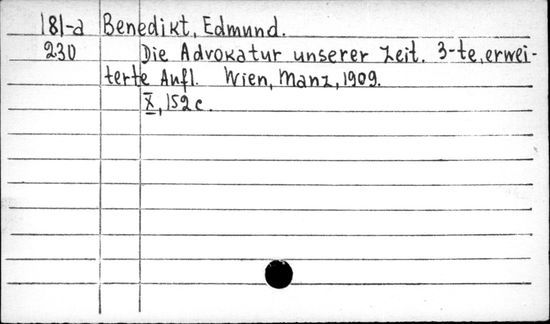 181-a Benedikt, Edmund.
230 Die Advokatur unserer Zeit. 3-te, erwei-
terte Aufl. Wien, Manz, 1909.
X, 152 c.